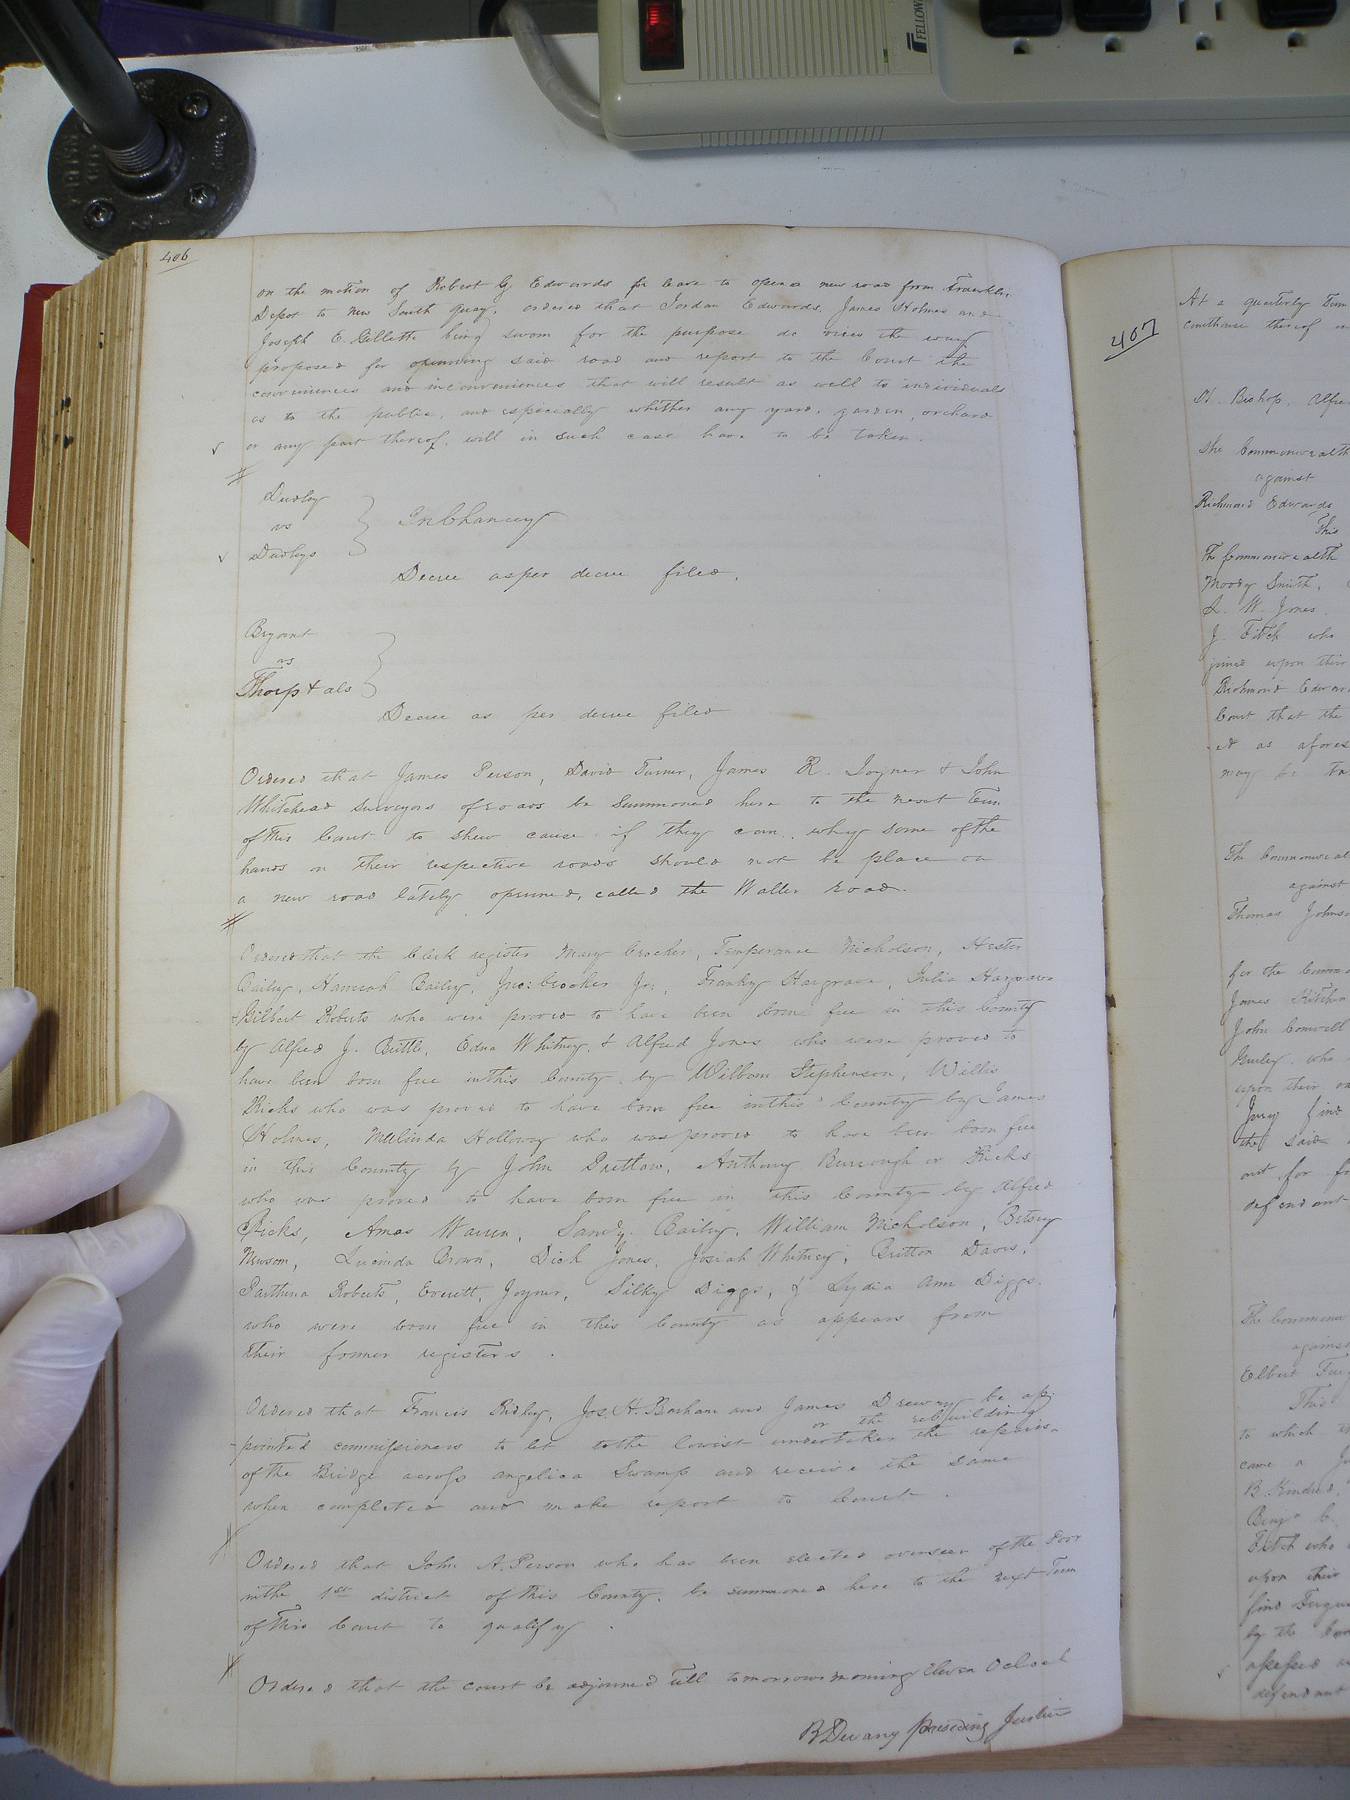 406
on the motion of Robert G Edwards for leave to open a new road from Franklin
Depot to New South quay, ordered that Jordan Edwards, James Holmes and
Joseph E. Gillette being sworn for the purpose do view the way
proposed for openning said road and report to the Court the
conveniences and inconveniences that will result as well to individuals
as to the public, and especially whither any yard, garden, orchard
or any part thereof, will in such case have to be taken.
Dudley
vs
Dudleys
In Chancery
Decree as per decree filed.
Bryant
vs
Thorp & als
Decree as per decree filed
Ordered that James Person, David Turner, James R. Joyner & John
Whitehead surveyors of roads be summoned here to the next Term
of this Court to shew cause if they can, why some of the
hands on their respective roads should not be place on
a new road lately openned, called the Waller road.
Ordered that the Clerk register Mary Crocker, Temperance Nicholson, Hester
Bailey, Hannah Bailey, Jno: Crocker Jr:, Franky Hargrave, Julia Hargrave
Gilbert Roberts who were proved to have been born free in this County
by Alfred J. Buttle, Edna Whitney, & Alfred Jones who were proved to
have been born free in this County by William Stephenson, Willis
Ricks who was proved to have born free in this County by James
Holmes, Melinda Holloway who was proved to have been born free
in this County by John Partlow, Anthony Burrough or Ricks
who was proved to have born free in this County by Alfred
Ricks, Amos Warren, Sandy Bailey, William Nicholson, Betsey
Newsom, Lucinda Brown, Dick Jones, Josiah Whitney, Britton Davis,
Parthena Roberts, Everett, Joyner, Silky Diggs, & Lydia Ann Diggs.
who were born free in this County as appears from
their former registers.
Ordered that Francis Ridley, Jos. H. Barham and James Drewry be ap
or the rebuilding
-pointed commissioners to let to the lowest undertaker the repairs
of the Bridge across angelica Swamp and receive the same
when completed and make report to Court.
Ordered that John A. Person who has been elected overseer of the Poor
in the 1st district of this County, be summoned here to the next Term
of this Court to qualify.
Ordered that the court be adjourned till tomorrow morning Eleven Oclock
Presiding Justice
407
At a quarterly Term
courthouse thereof
Bishop, Alfre
The Commonwealth
against
Richmond Edwards
This
The Commonwealth
Moody Smith,
W. Jones
J. Fitch who
joined upon their
Richmond Edwar
Court that the
ed as afores
may be ta
The Commonweal
against
Thomas Johnso
for the Comm
James Kitchen
John
Gurley, who
upon their oa
Jury find
the said
out, for
defendant
The Commonw
against
Elbert
This
to which
came a
B. Kindred,
Benj. C.
Fitch who
upon their
find
by the
assessed
defendant